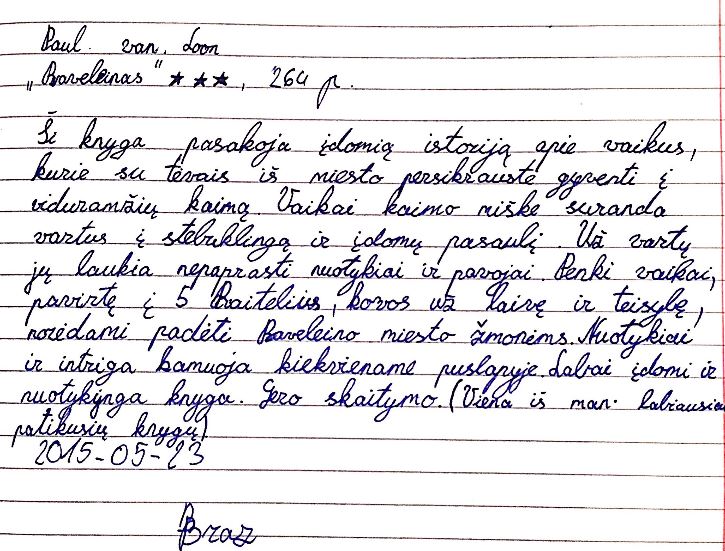 Paul. van. Loon
„Raveleinas" ★★★, 264 p.
Ši knyga pasakoja įdomią istoriją apie vaikus,
kurie su tėvais iš miesto persikraustė gyventi į
viduramžių kaimą. Vaikai kaimo miške suranda
vartus į stebuklingą ir įdomų pasaulį. Už vartų
jų laukia nepaprasti nuotykiai ir pavojai. Penki vaikai,
pavirtę į 5 Raitelius, kovos už laisvę ir teisybę,
norėdami padėti Raveleino miesto žmonėms. Nuotykiai
ir intriga kamuoja kiekviename puslapyje. Labai įdomi ir
nuotykinga knyga. Gero skaitymo. (Viena iš man. labiausiai
patikusių knygų)
2015-05-23